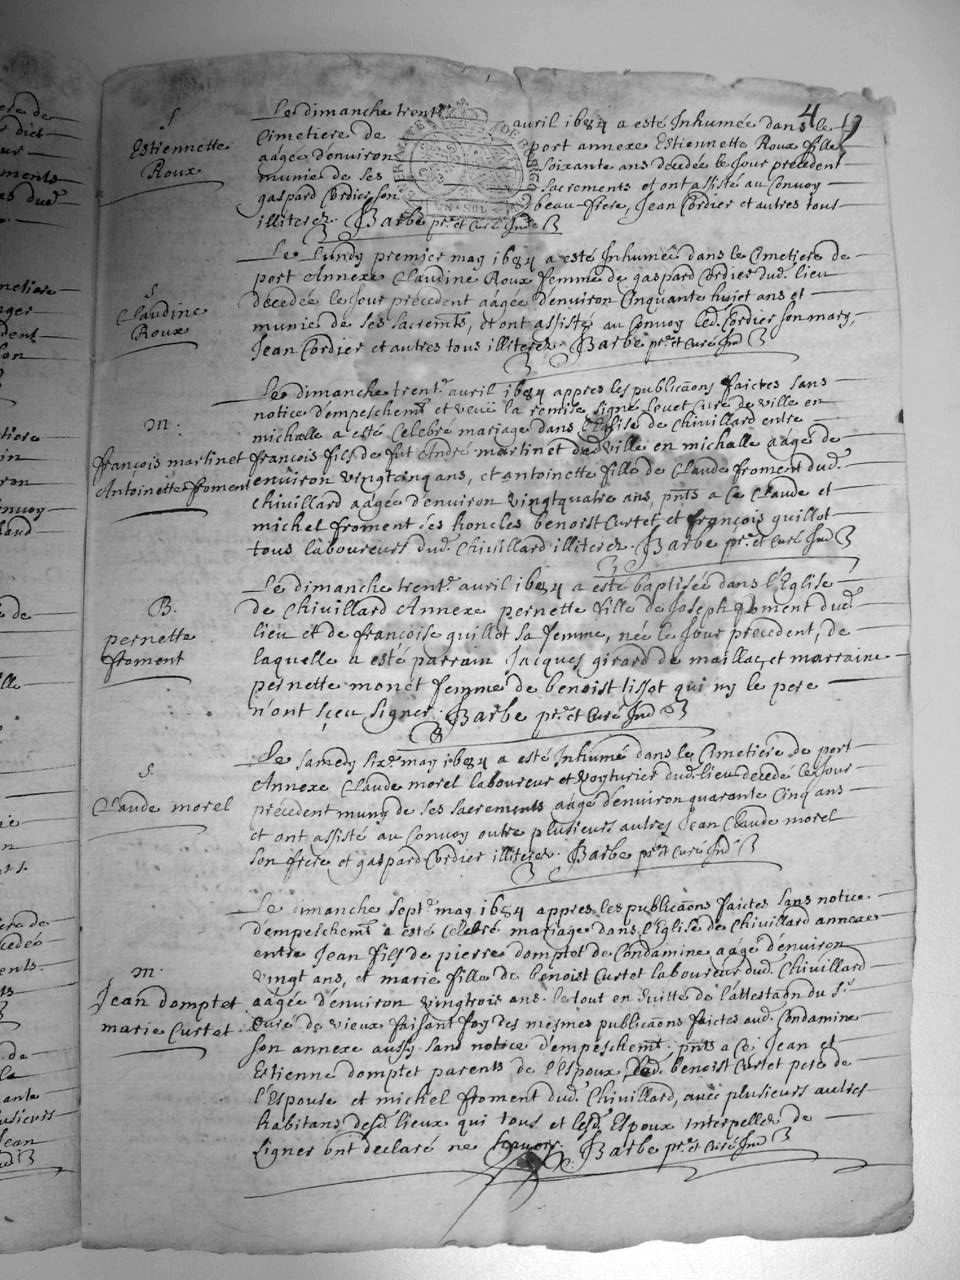 4
S
Estiennette
Roux
Le dimanche trente avril 1684 a esté Inhumée dans le
Cimetiere de port annexe Estiennette Roux fille
aagée d'environ soixante ans decedée le Jour précedent
munie de ses Sacrements et ont assisté au Convoy
gaspard Cordier son beau-frere, Jean Cordier et autres tous
illiterez. Barbe ptre. et Curé Ind
S
Claudine
Roux
Le Lundy premier may 1684 a esté Inhumée dans le Cimetiere de
port Annexe Claudine Roux femme de gaspard Cordier dud. lieu
décedée le Jour précedent aagée d'environ Cinquante huict ans et
munie de ses sacremts, et ont assisté au Convoy led. Cordier son mary,
Jean Cordier et autres tous illiterez. Barbe ptre. et Curé Ind
m.
françois martinet
Antoinette froment
Le dimanche trente. avril 1684 appres les publicaõns faictes sans
notice d'empeschemt et veüe la remise signé louet Curé de ville en
michaille a esté Celebré mariage dans l'Eglise de Chivillard entre
françois fils de fut André martinet de ville en michaille aagé de
environ vingtcinq ans, et antoinette fille de Claude froment dud.
Chivillard aagée d'environ vingtquatre ans, pnts a ce Claude et
michel froment ses honcles benoist Curtet et françois quillot
tous laboureurs dud. Chivillard illiterez. Barbe ptre. et Curé Ind
B.
pernette
froment
Le dimanche trente. avril 1684 a esté baptisée dans l'Eglise
de Chivillard Annexe pernette fille de Joseph froment dud.
lieu et de françoise quillot sa femme, née le Jour precedent, de
laquelle a esté parrain Jacques girard de maillac, et marraine
pernette monet femme de benoist lissot qui ny le pere
n'ont sçeu signer. Barbe ptre. et Curé Ind
S.
Claude morel
Le samedy sixe. may 1684 a esté Inhumé dans le Cimetiere de port
Annexe Claude morel laboureur et voyturier dud. lieu decedé le Jour
précedent muny de ses sacrements aagé d'environ quarante Cinq ans
et ont assisté au Convoy outre plusieurs autres Jean Claude morel
son frere et gaspard Cordier illiterez. Barbe ptre. et Curé Ind
m.
Jean domptet
marie Curtet
Le dimanche septe. may 1684 appres les publicaõns faictes sans notice
d'empeschemt a esté Celebré mariage dans l'Eglise de Chivillard annexe
entre Jean fils de pierre domptet de Condamine aagé d'environ
vingt ans, et marie fille de benoist Curtet laboureur dud. Chivillard
aagée d'environ vingtrois ans. le tout en suitte de l'attestaõn du Sr.
Curé de vieux faisant foy des mesmes publicaõns faictes aud. Condamine
son annexe aussy sans notice d'empeschemt. pnts a ce Jean et
Estienne domptet parents de l'Espoux, led. benoist Curtet pere de
l'Espouse et michel froment dud. Chivillard, avec plusieurs autres
habitans desd. lieux qui tous et lesd. Espoux interpellez de
signer ont declaré ne sçavoir. Barbe ptre. et Curé Ind